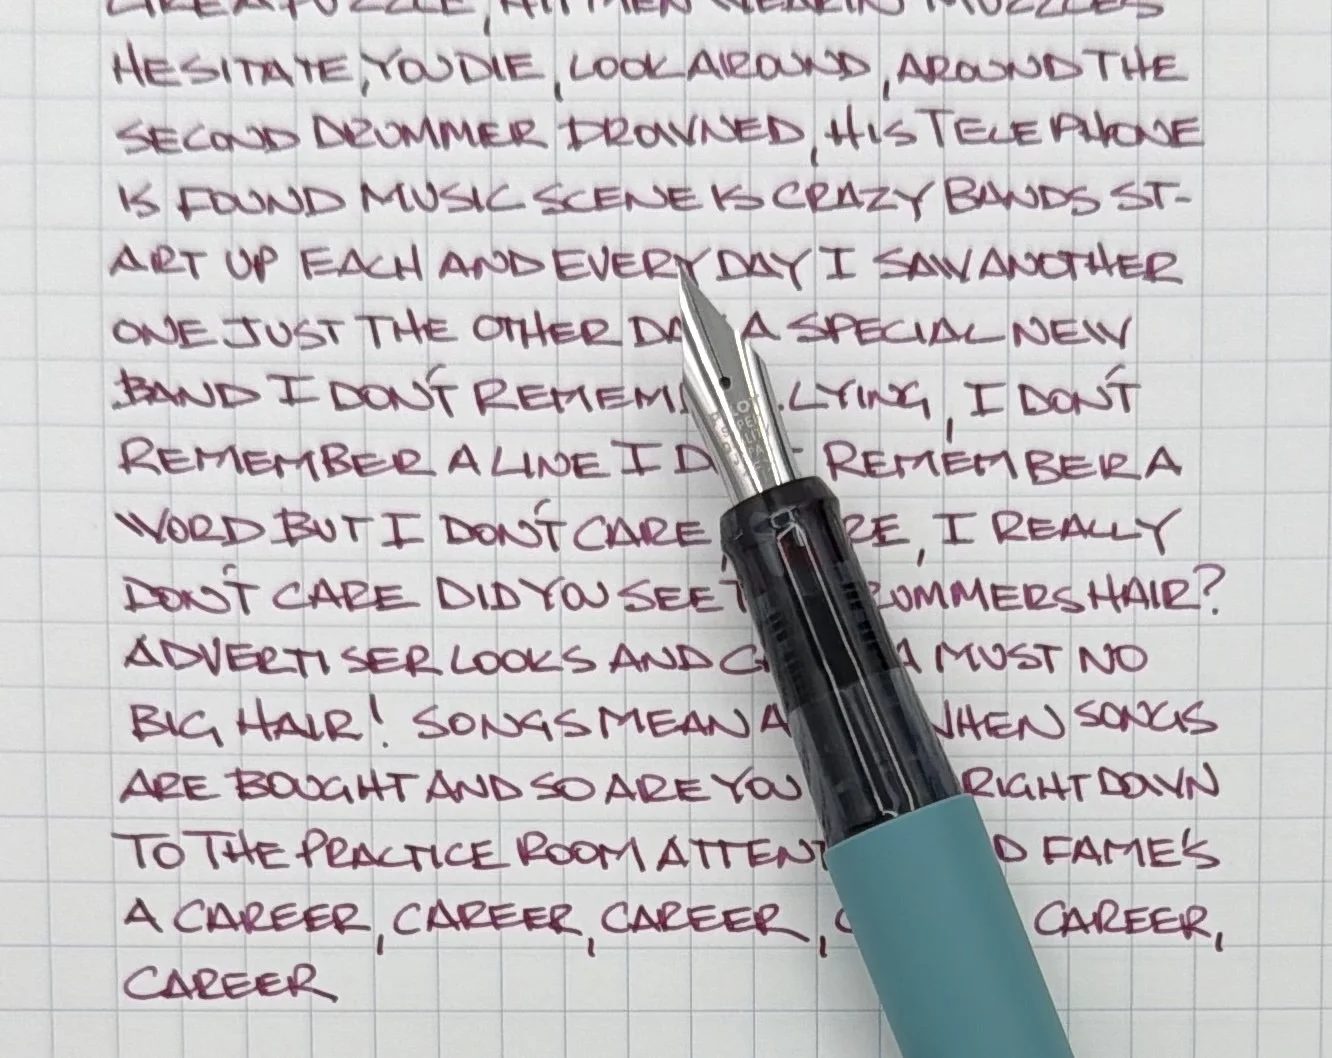 LIKE A PUZZLE, HITMEN WEARIN MUZZLES
HESITATE, YOU DIE, LOOK AROUND, AROUND THE
SECOND DRUMMER DROWNED, HIS TELEPHONE
IS FOUND MUSIC SCENE IS CRAZY BANDS ST-
ART UP EACH AND EVERY DAY I SAW ANOTHER
ONE JUST THE OTHER A SPECIAL NEW
BAND I DON'T LYING, I DON'T
REMEMBER A LINE I REMEMBER A
WORD BUT I DON'T CARE , I REALLY
DON'T CARE DID YOU SEE HAIR?
ADVERTISER LOOKS AND MUST NO
BIG HAIR! SONGS MEAN A WHEN SONGS
ARE BOUGHT AND SO ARE YOU RIGHT DOWN
TO THE PRACTICE ROOM FAME'S
A CAREER, CAREER, CAREER, CAREER,
CAREER